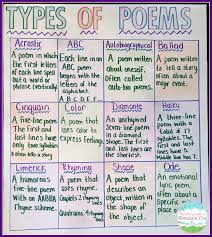 TYPES OF POEMS
Acrostic
A poem in which
the first letters
of each line spell
out a word or
phrase (vertically).
ABC
Each line in an
ABC poem
begins with the
letters of the
alphabet.
A B C D E F
Autobiographical
A poem written
about oneself,
often called
auto-bio poems.
Ballad
A poem
written to tell
a story, often
about a major
event.
Cinquain
A five-line
poem. The first
and last lines
only contain
two syllables.
Color
A poem
written about
your favorite
color.
Diamante
An unrhymed
seven-line poem
in a diamond
shape. The first
and last lines
are shortest.
Haiku
A three-line
poem with a
first and last
line of 5
syllables
Limerick
A humorous
five-line poem
with an AABBA
rhyme scheme.
Rhyming
A poem that
uses rhyme.
Couplets 2 rhyming
Quatrains 4 rhyming
Shape
A poem that
describes an
object, written in
the shape of
the object.
Ode
A poem of
intense feeling,
often about
one